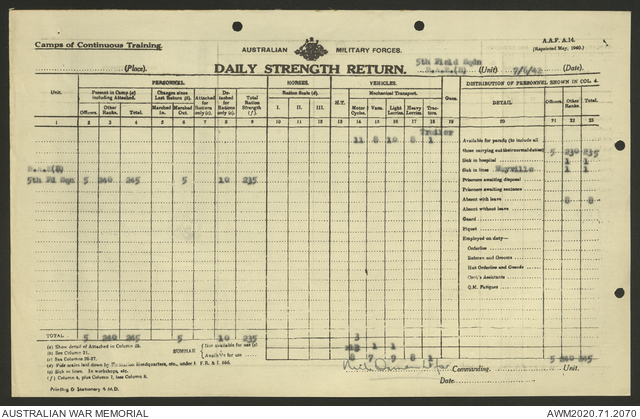 Camps of Continuous Training.
AUSTRALIAN MILITARY FORCES.
A.A.F. A.14.
(Reprinted May, 1940.)
5th Field Sqdn
(Place).
DAILY STRENGTH RETURN.
(Unit) 7/6/42 (Date)
PERSONNEL.
HORSES.
VEHICLES.
DISTRIBUTION OF PERSONNEL SHOWN IN COL. 4.
Unit.
Present in Camp (a) including Attached.
Changes since Last Return (b).
Attached for Rations only (c).
Detached for Rations only (c).
Total Ration Strength (f).
Ration Scale (d).
Mechanical Transport.
Guns.
DETAIL
Officers.
Other Ranks.
Total.
Marched In.
Marched Out.
I.
II.
III.
H.T.
Motor Cycles.
Vans.
Light Lorries.
Heavy Lorries.
Tractors.
Officers.
Other Ranks.
Total.
1 2 3 4 5 6 7 8 9 10 11 12 13 14 15 16 17 18 19 20 21 22 23
Trailer
11 8 10 8 1
Available for parade (to include all
those carrying out their normal duties) 5 230 235
Sick in hospital 1 1
Sick in lines Mayville 1 1
5th Fd Sqn 5 240 245 5 10 235
Prisoners awaiting disposal
Prisoners awaiting sentence
Absent with leave 8 8
Absent without leave
Guard
Piquet
Employed on duty—
Orderlies
Batmen and Grooms
Hut Orderlies and Guards
Clerk's Assistants
Q.M. Fatigues
TOTAL 5 240 245 5 10 235
(a) Show detail of Attached in Column 20.
(b) See Column 21.
(c) See Columns 26-27.
SUMMARY
Not available for use
Available for use
8 7 9 8 1
5 240 245
(e) Sick in lines. In workshops, etc.
(f) Column 4, plus Column 7, less Column 8.
Commanding Unit.
Date
Printing & Stationery 4 M.D.
AUSTRALIAN WAR MEMORIAL
AWM2020.71.2070